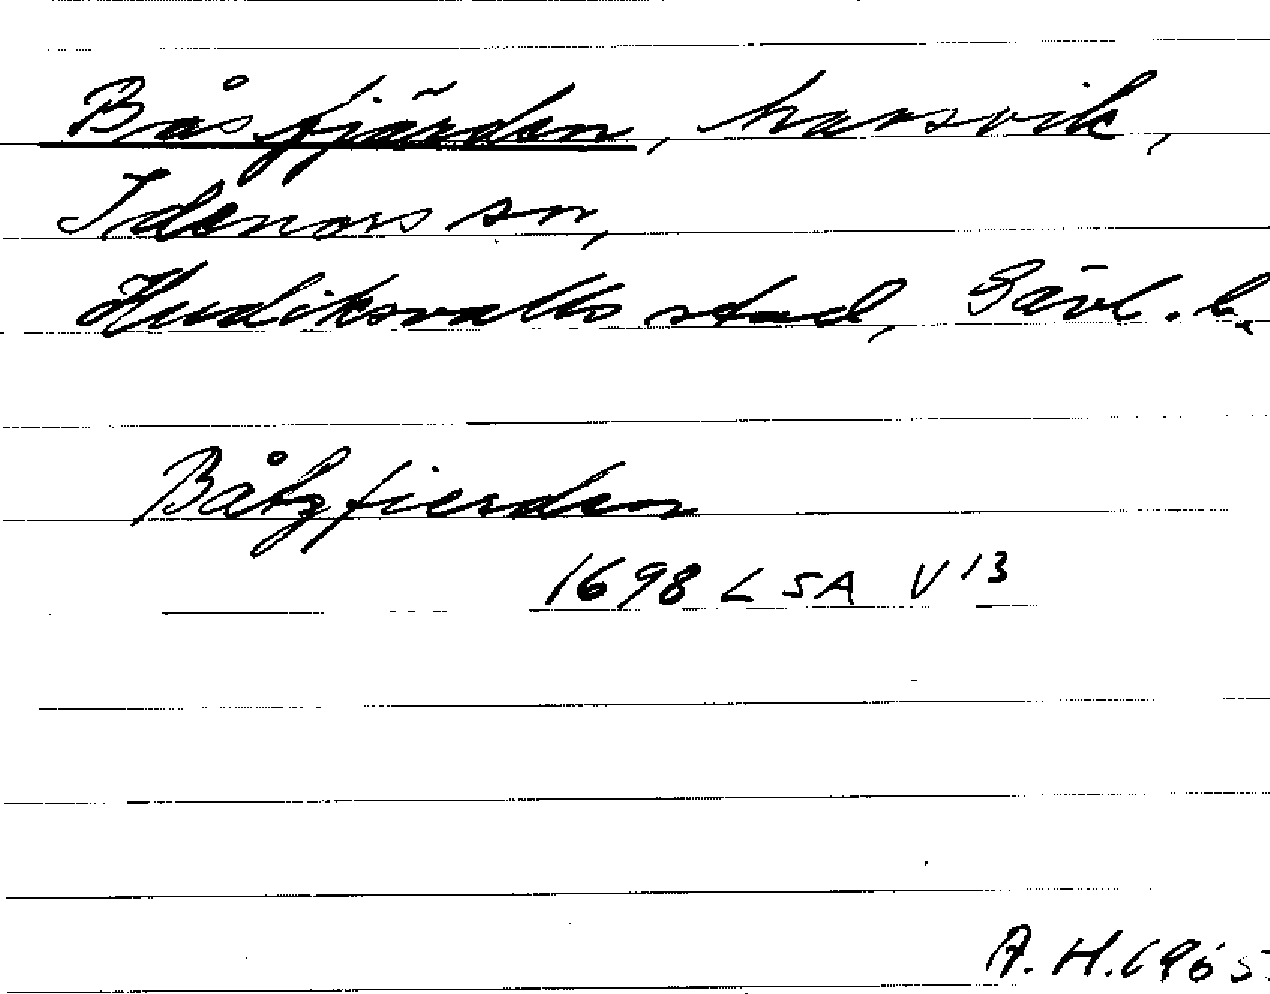 Båsfjärden, havsvik,
Idenors sn,
Hudiksvalls stad, Gävl. l.
Båtzfierden
1698 LSA V 13
A. H. 1965